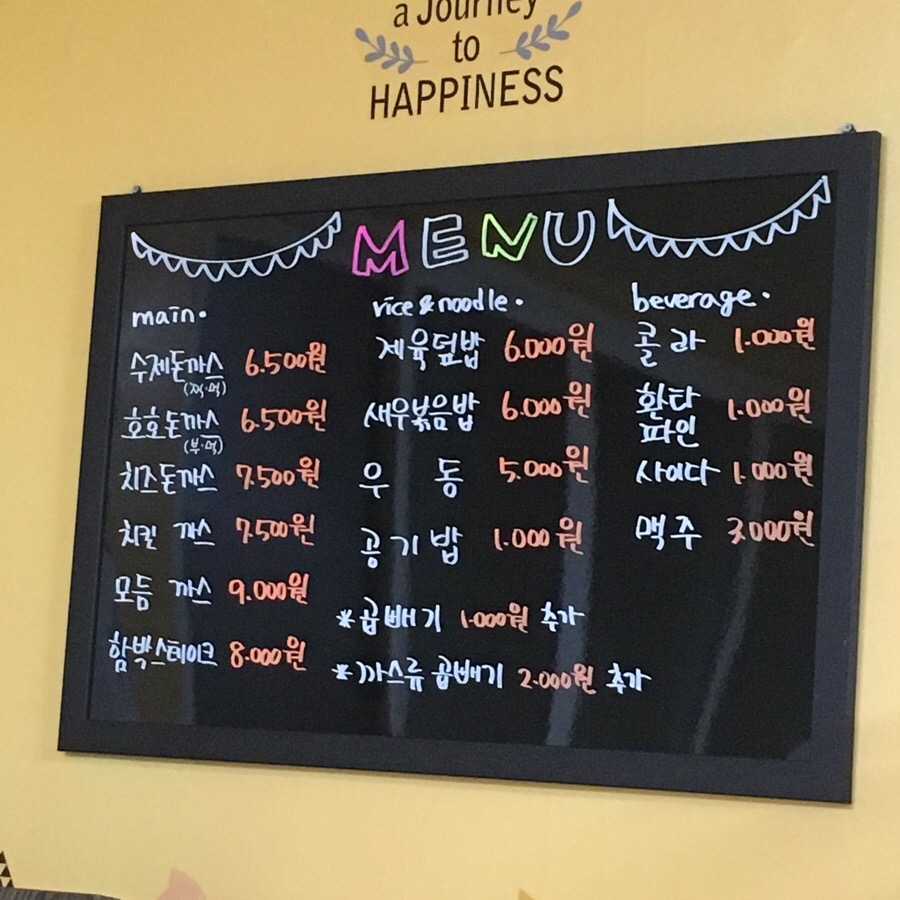 a Journey
to
HAPPINESS
MENU
main.
수제돈까스 6.500원
(찍·먹)
호호돈까스 6.500원
(부·먹)
치즈돈까스 7.500원
치킨 까스 7.500원
모듬 까스 9.000원
함박스테이크 8.000원
rice & noodle.
제육덮밥 6.000원
새우볶음밥 6.000원
우 동 5.000원
공기밥 1.000원
*곱배기 1.000원 추가
*까스류 곱배기 2.000원 추가
beverage.
콜라 1.000원
환타 1.000원
파인
사이다 1.000원
맥주 3.000원